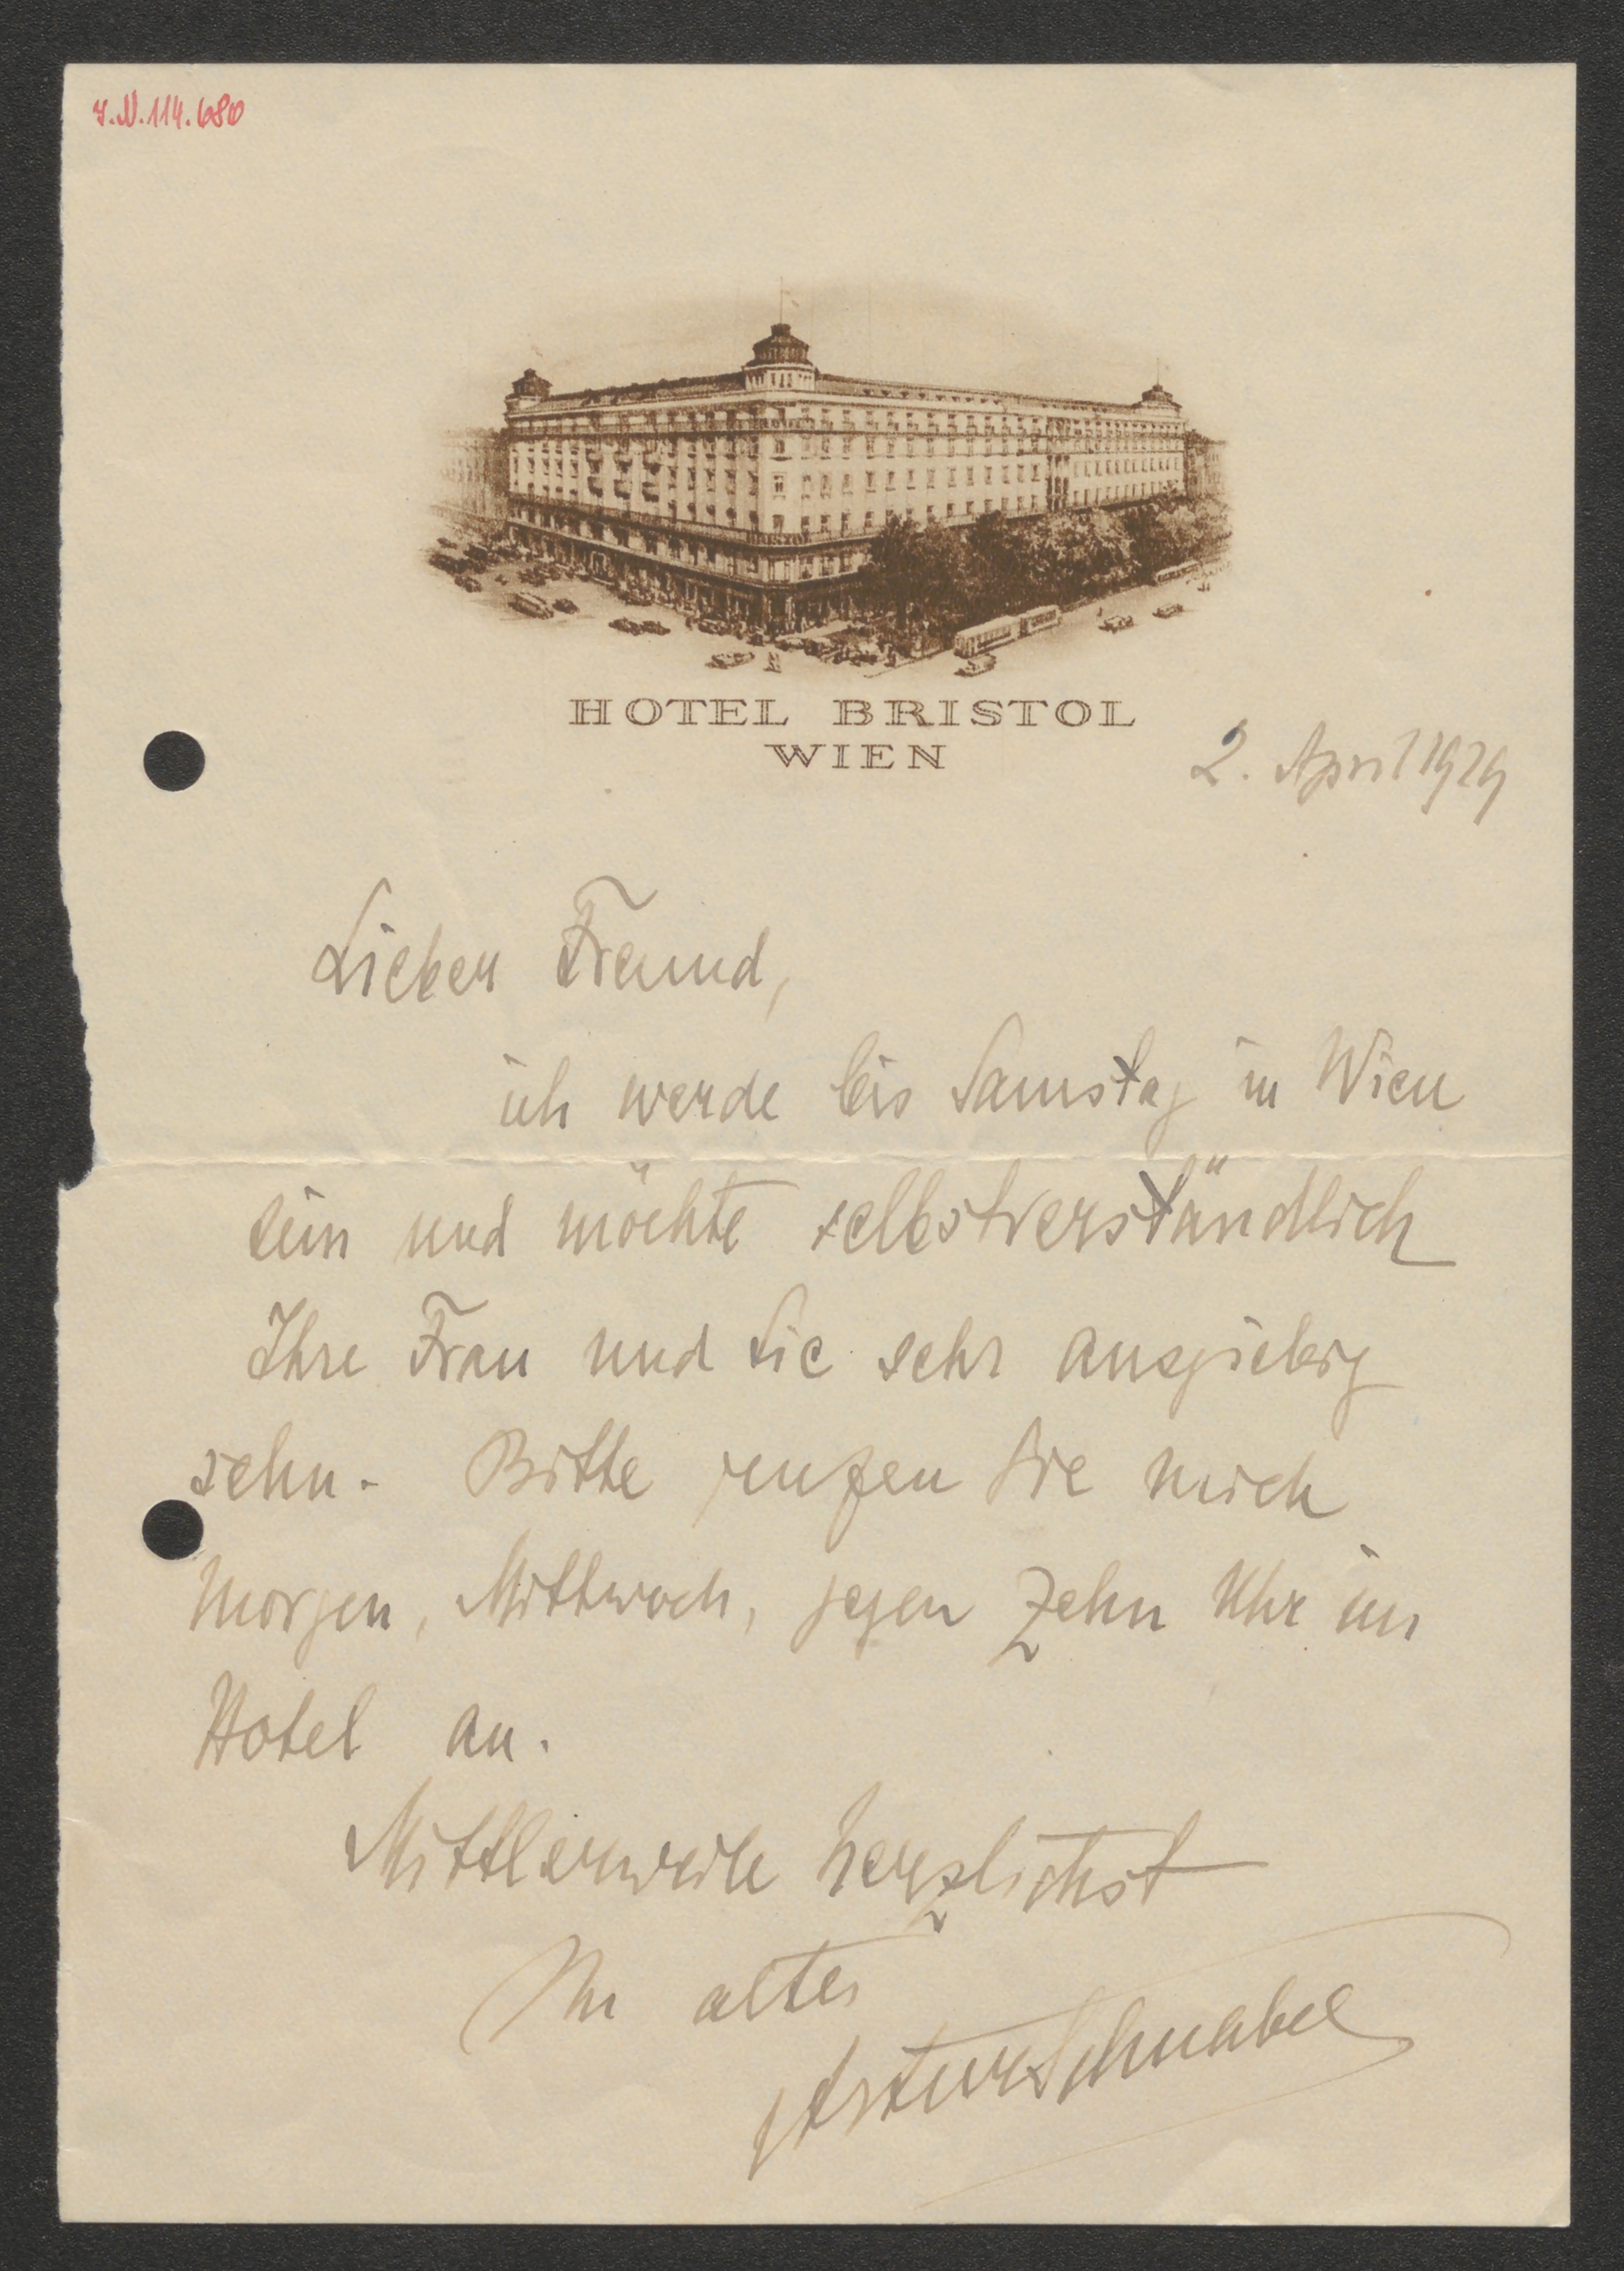 I.N. 114.680
BRISTOL
HOTEL BRISTOL
WIEN
2. April 1929
Lieber Freund,
ich werde bis Samstag in Wien
sein und möchte selbstverständlich
Ihre Frau und Sie sehr ausgiebig
sehn. Bitte rufen Sie mich
morgen, Mittwoch, gegen zehn Uhr im
Hotel an.
Mittlerweile herzlichst
Ihr alter
Artur Schnabel